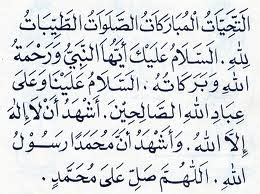 اَلتَّحِيَّاتُ الْمُبَارَكَاتُ الصَّلَوَاتُ الطَّيِّبَاتُ
لِلّٰهِ . اَلسَّلَامُ عَلَيْكَ أَيُّهَا النَّبِيُّ وَرَحْمَةُ
اللهِ وَبَرَكَاتُهُ . اَلسَّلَامُ عَلَيْنَا وَعَلَى
عِبَادِ اللهِ الصَّالِحِيْنَ . أَشْهَدُ أَنْ لَا إِلٰهَ
إِلَّا اللهُ . وَأَشْهَدُ أَنَّ مُحَمَّدًا رَسُوْلُ
اللهِ . اَللّٰهُمَّ صَلِّ عَلَى مُحَمَّدٍ .